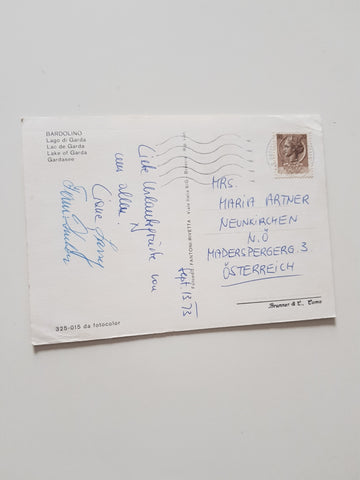 BARDOLINO
Lago di Garda
Lac de Garda
Lake of Garda
Gardasee
Liebe Urlaubsgrüße von
uns allen.
Sept. 13. 73
MRS.
MARIA ARTNER
NEUNKIRCHEN
N.Ö
MADERSPERGERG. 3
ÖSTERREICH
FANTONI-RIVETTA
Brunner & C., Como
325-015 da fotocolor